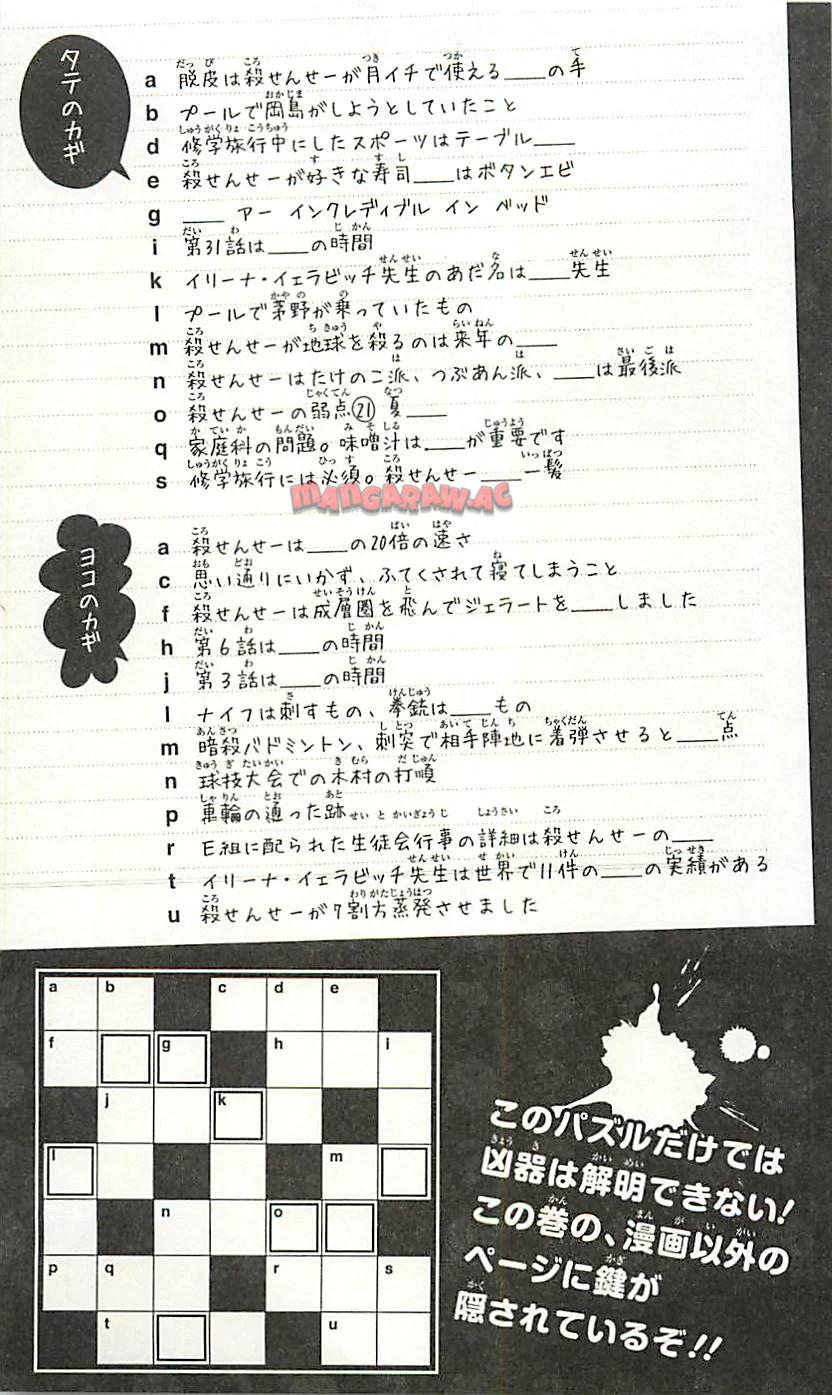 タテのカギ
a 脱皮は殺せんせーが月イチで使える____の手
b プールで岡島がしようとしていたこと
d 修学旅行中にしたスポーツはテーブル____
e 殺せんせーが好きな寿司____はボタンエビ
g ____ アー インクレディブル イン ベッド
i 第31話は____の時間
k イリーナ・イェラビッチ先生のあだ名は____先生
l プールで茅野が乗っていたもの
m 殺せんせーが地球を殺るのは来年の____
n 殺せんせーはたけのこ派、つぶあん派、____は最後派
o 殺せんせーの弱点㉑ 夏____
q 家庭科の問題。味噌汁は____が重要です
s 修学旅行には必須。殺せんせー____一髪
MANGARAW.AC
ヨコのカギ
a 殺せんせーは____の20倍の速さ
c 思い通りにいかず、ふてくされて寝てしまうこと
f 殺せんせーは成層圏を飛んでジェラートを____しました
h 第6話は____の時間
j 第3話は____の時間
l ナイフは刺すもの、拳銃は____もの
m 暗殺バドミントン、刺突で相手陣地に着弾させると____点
n 球技大会での木村の打順
p 車輪の通った跡
r E組に配られた生徒会行事の詳細は殺せんせーの____
t イリーナ・イェラビッチ先生は世界で11件の____の実績がある
u 殺せんせーが7割方蒸発させました
a b c d e
f g h i
j k
l m
n o
p q r s
t u
このパズルだけでは
凶器は解明できない!
この巻の、漫画以外の
ページに鍵が
隠されているぞ!!